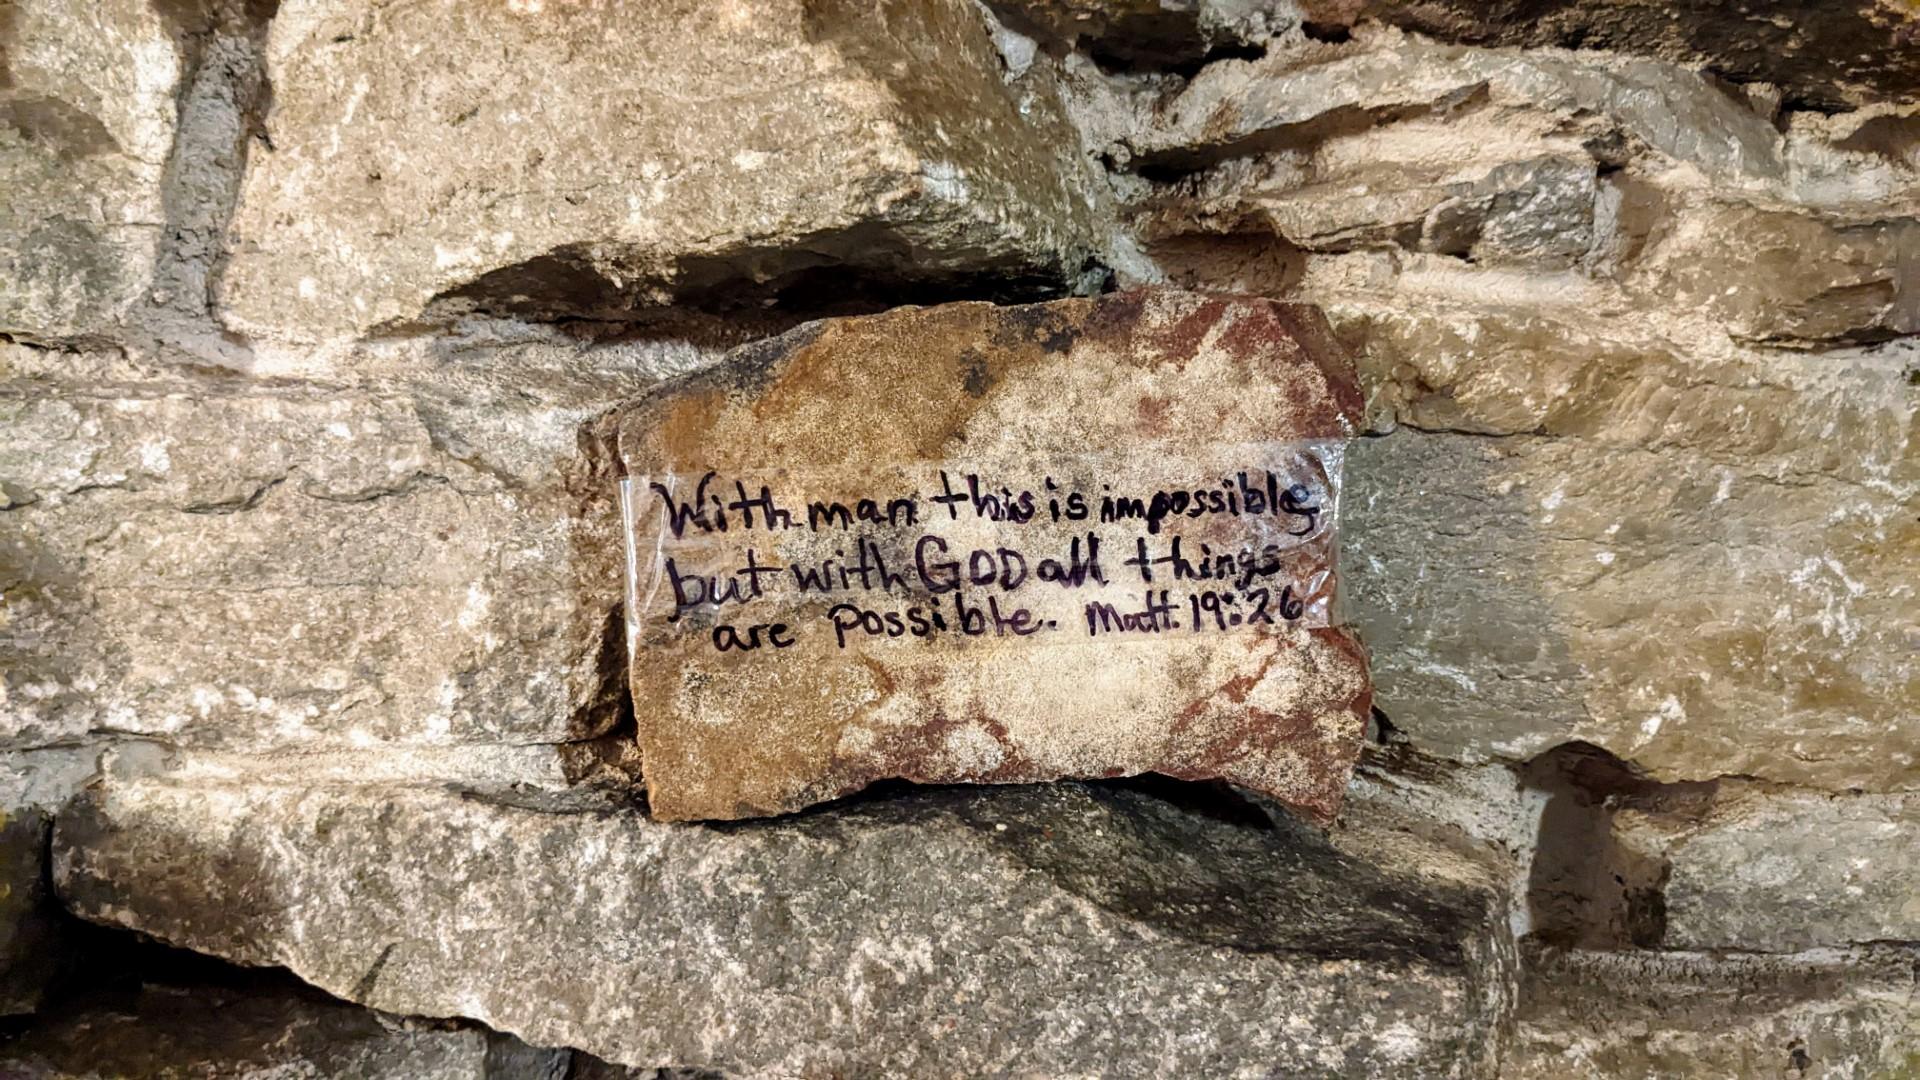 With man this is impossible
but with GOD all things
are possible. Matt. 19:26